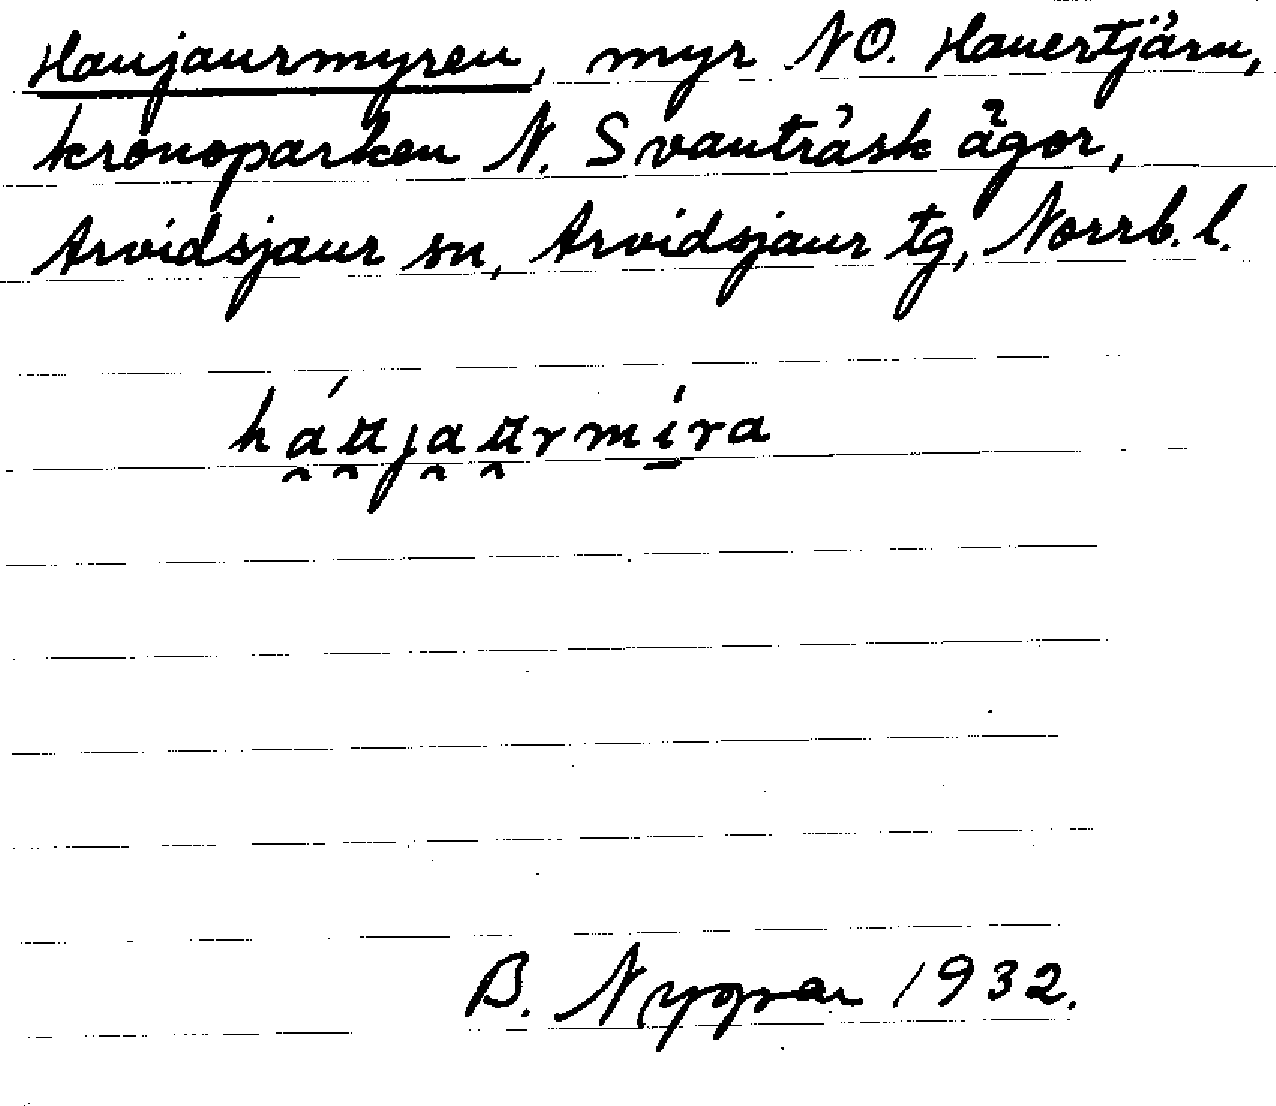 Haujaurmyren, myr NO. Hauertjärn,
kronoparken N. Svanträsk ägor,
Arvidsjaur sn, Arvidsjaur tg, Norrb. l.
háu̯ja̯u̯rmíra
B. Nygren 1932.